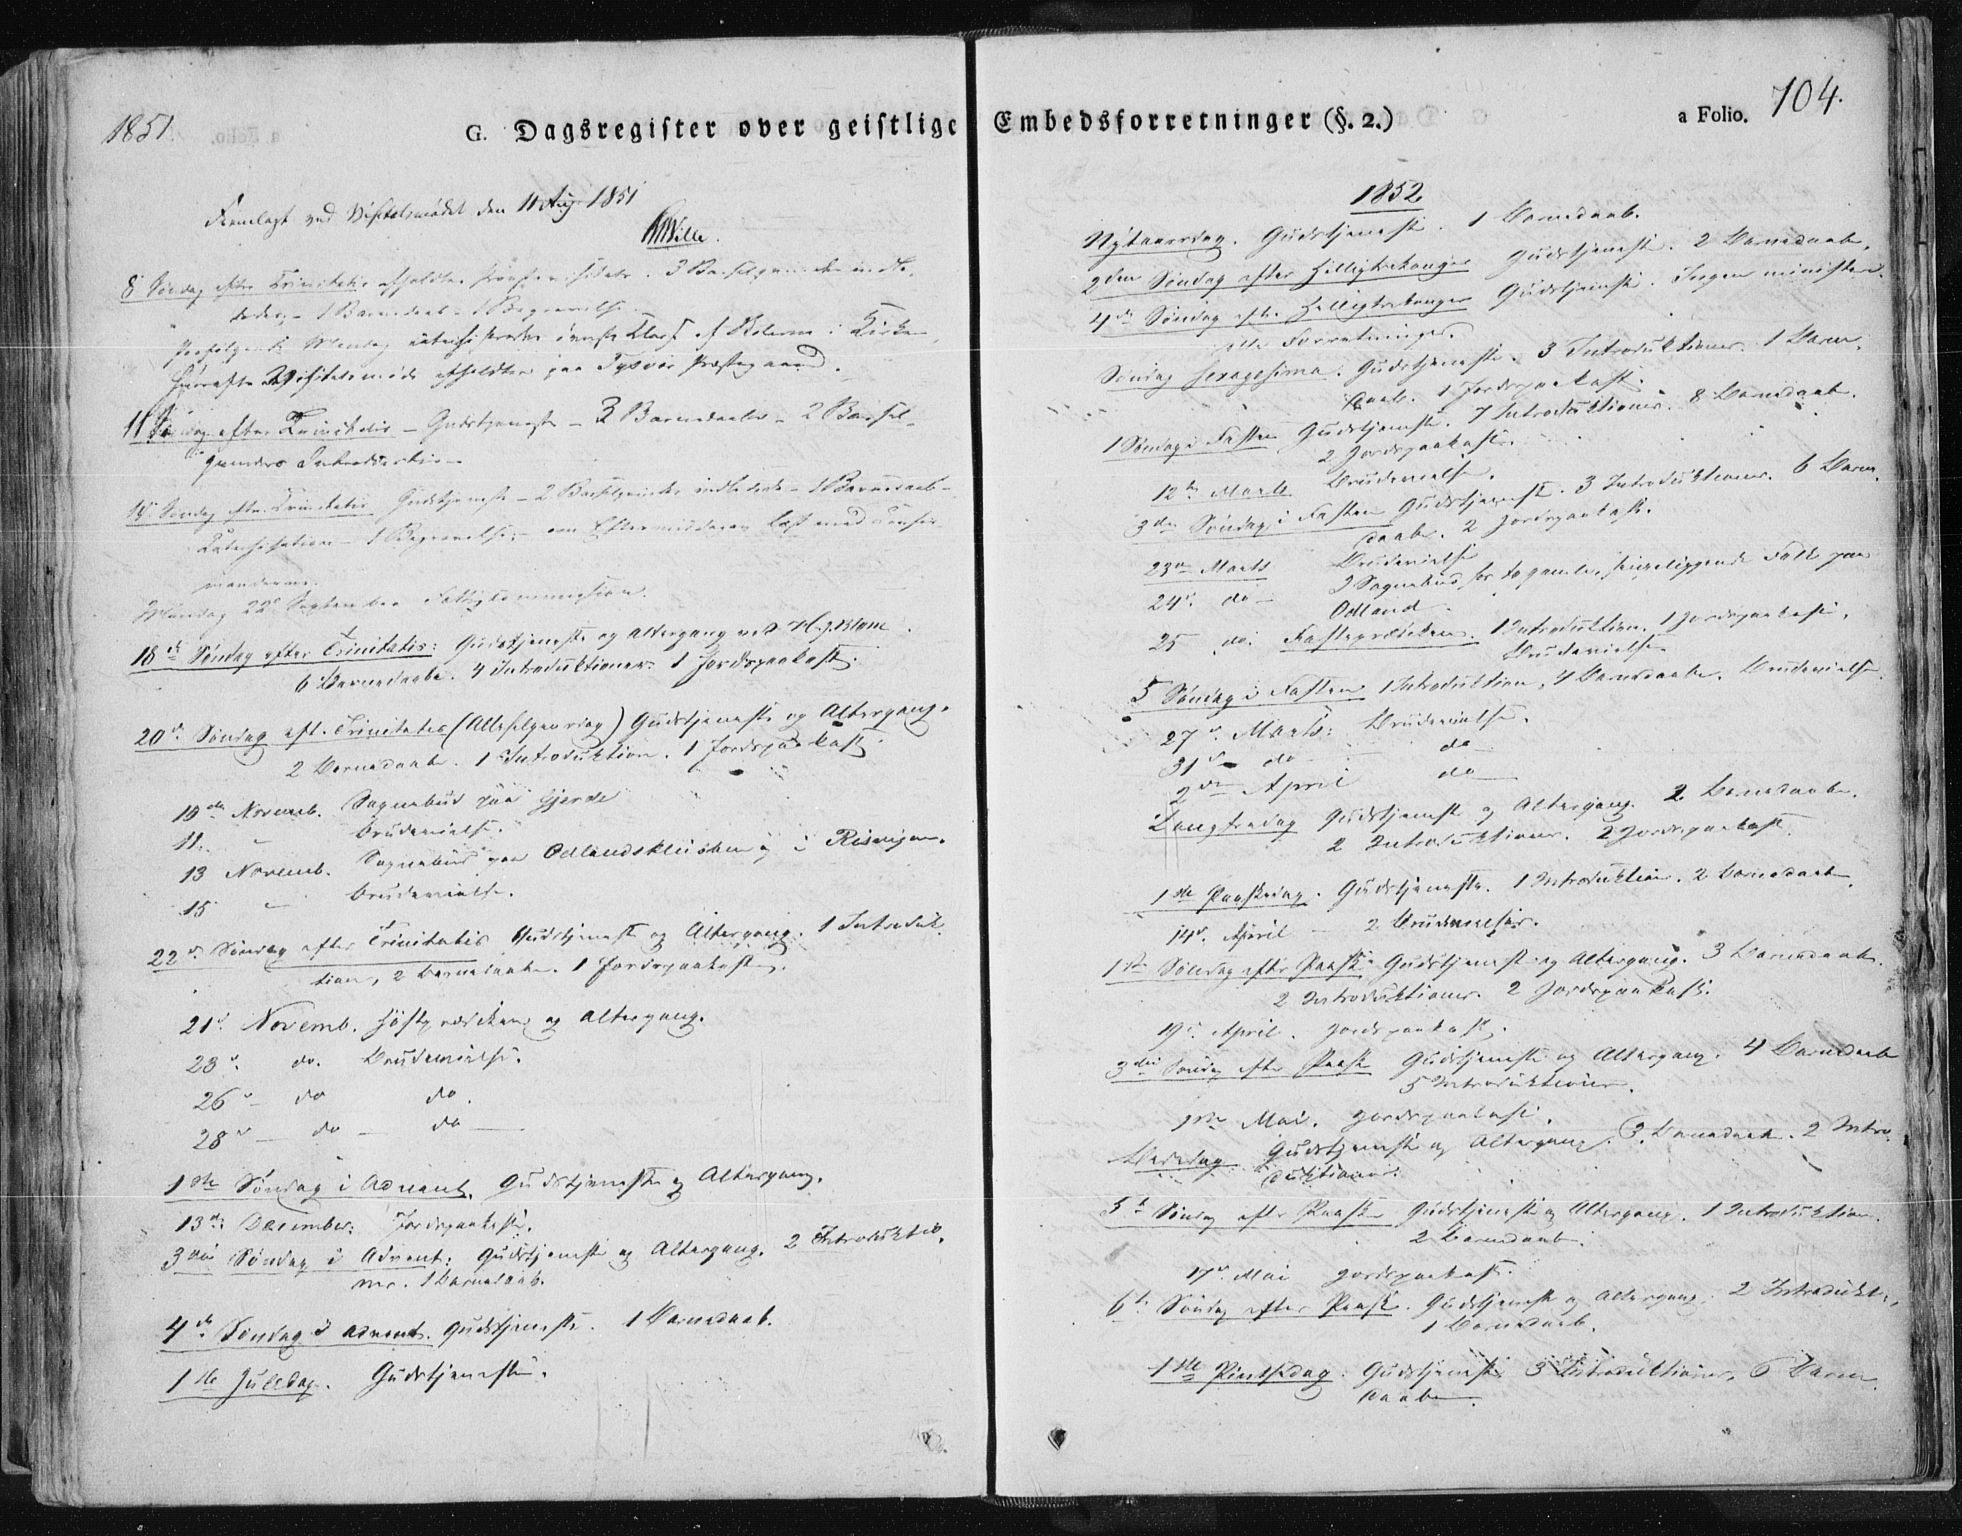 1851.
G. Dagsregister over geistlige Embedsforretninger (§. 2.)
a Folio. 104.
Fremlagt ved Visitatsmødet den 11 Aug 1851
8 Søndag efter Trinitatis afholdtes 3 Barselqvinder indle-
dedes, - 1 Barnedaab - 1 Begravelse.
Paafølgende Mandag Klasse af Skolerne i Kirken
Visitatsmøde afholdtes paa Tysvær Præstegaard.
11 Søndag efter Trinitatis - Gudstjeneste - 3 Barnedaab - 2 Barsel-
qvinders Introduction
Søndag efter Trinitatis Gudstjeneste - 2 Barselqvinder indledede - 1 Barnedaab -
Katechisation - 1 Begravelse; - om Eftermiddagen læst med Konfir-
manderne.
Mandag 22de September Fattigkommission.
18de Søndag efter Trinitatis: Gudstjeneste og Altergang ved
6 Barnedaabe. 4 Introduktioner. 1 Jordspaakast.
20de Søndag eft. Trinitatis (Allehelgensdag) Gudstjeneste og Altergang.
2 Barnedaab. 1 Introduktion. 1 Jordspaakast
10de Novemb. Sognebud paa Gjerde
11. " Brudevielse.
13 Novemb. Sognebud paa og i
15 " Brudevielse.
22de Søndag efter Trinitatis Gudstjeneste og Altergang. 1 Introduk-
tion, 2 Barnedaab. 1 Jordspaakast.
21de Novemb. Høstprædiken og Altergang.
23de do. Brudevielse.
26de do do.
28de - do - do
1ste Søndag i Advent. Gudstjeneste og Altergang.
13de December: Jordspaakast.
3die Søndag i Advent: Gudstjeneste og Altergang. 2 Introduktio-
ner. 1 Barnedaab.
4de Søndag i Advent. Gudstjeneste. 1 Barnedaab.
1ste Juledag. Gudstjeneste.
1852
Nytaarsdag. Gudstjeneste. 1 Barnedaab.
2den Søndag efter Helligtrekonger Gudstjeneste. 2 Barnedaab.
4de Søndag eft. Helligtrekonger Gudstjeneste. Ingen ministeri-
elle Forretninger.
Søndag Sexagesima. Gudstjeneste. 3 Introduktioner. 1 Barne-
daab. 1 Jordspaakast.
1 Søndag i Fasten Gudstjeneste. 7 Introduktioner. 8 Barnedaab.
2 Jordspaakast.
12te Marts Brudevielse.
3die Søndag i Fasten Gudstjeneste. 3 Introduktioner. 6 Barne-
daab. 2 Jordspaakast.
23de Marts Brudevielse
24de do - 2 Sognebud for to gamle, sengeliggende Folk paa
Odland.
25 do: Fasteprædiken. 1 Introduktion. 1 Jordspaakast.
Brudevielse
5 Søndag i Fasten 1 Introduktion, 4 Barnedaab. Brudevielse.
27de Marts: Brudevielse.
31te do do
2den April do
Langfredag Gudstjeneste og Altergang. 2 Barnedaab.
2 Introduktioner. 2 Jordspaakast.
1ste Paaskedag. Gudstjeneste. 1 Introduktion. 2 Barnedaab.
14de April - 2 Brudevielser.
1ste Søndag efter Paaske Gudstjeneste og Altergang. 3 Barnedaab.
2 Introduktioner. 2 Jordspaakast.
19de April. Jordspaakast.
3die Søndag efter Paaske Gudstjeneste og Altergang. 4 Barnedaab
5 Introduktioner.
Mai. Jordspaakast.
Bededag Gudstjeneste og Altergang. 3 Barnedaab. 2 Intro-
duktioner.
5te Søndag efter Paaske Gudstjeneste og Altergang. 1 Introduktion.
2 Barnedaab.
17de Mai Jordspaakast.
6te Søndag efter Paaske. Gudstjeneste og Altergang. 2 Introdukt.,
1 Barnedaab.
1ste Pintsedag. Gudstjeneste 3 Introduktioner, 6 Barne-
daab.